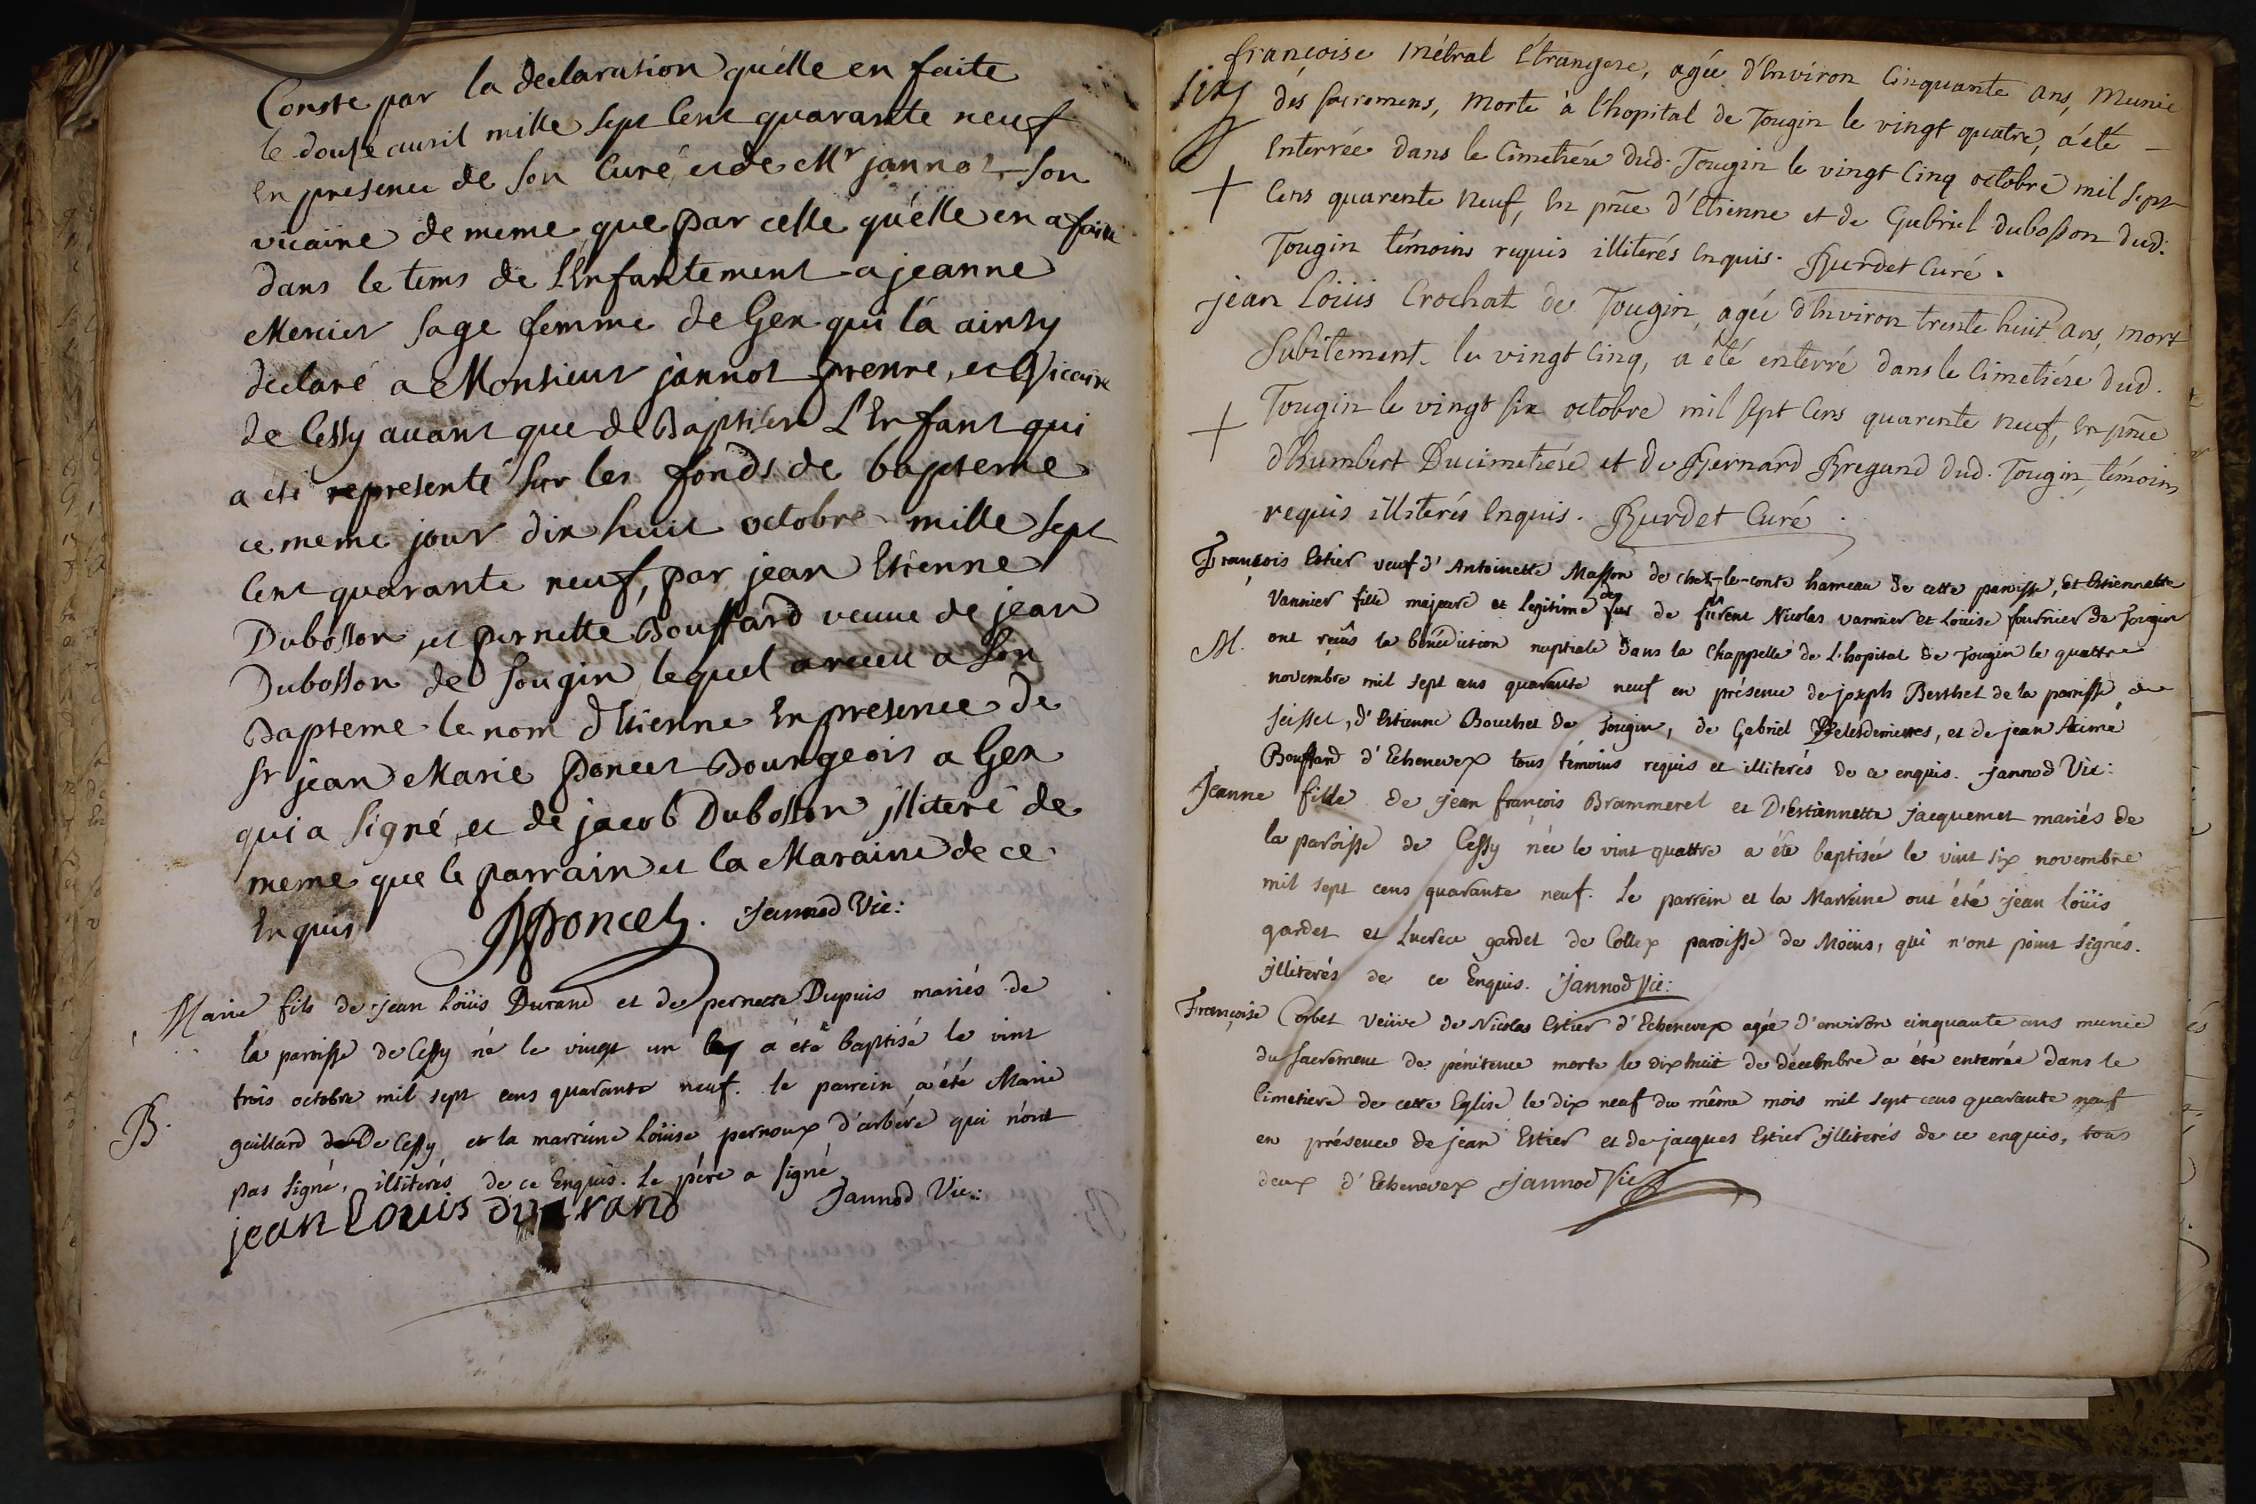 Conste par la declaration qu'elle en faite
le douse auril mille sept Cent quarante neuf
En presence de son Curé et de Mr jannot son
vicaire de meme que par celle qu'elle en a faitte
dans le tems de L'Enfantement a jeanne
Mercier sage femme de Gex qui l'a ainsy
declaré a Monsieur jannot pretre, et Vicaire
de Cessy auant que de Baptiser L'Enfant qui
a eté representé sur les fonds de bapteme
ce meme jour dix huit octobre mille sept
Cent quarante neuf, par jean Etienne
Dubosson et pernette Bouffard veuue de jean
Dubosson de Tougin lequel a receu a son
Bapteme le nom d'Etienne En presence de
Sr jean Marie Poncet Bourgeois a Gex
qui a signé et de jacob Dubosson jlliteré de
meme que le parrain et la Maraine de ce
Enquis JPoncet. Jannod Vic:
Marie fils de jean Loüis Durand et de pernette Dupuis mariés de
la paroisse de Cessy né le vingt un a été baptisé le vint
B. trois octobre mil sept cens quarante neuf. le parrein a été Marie
gaillard de De Cessy et la marreine Loüise pernoux d'arbére qui n'ont
pas signé, illiterés de ce Enquis. Le pére a signé
Jannod Vic:
jean Louis durand
françoise Métral Etrangere, agée d'Environ Cinquante ans, Munie
des sacremens, Morte à l'hopital de Tougin le vingt quatre, a été
Enterrée dans le Cimetiére dud. Tougin le vingt Cinq octobre mil sept
+ Cens quarente Neuf, En pñce d'Etienne et de Gabriel dubosson dud:
Tougin témoins requis illiterés Enquis. Burdet Curé.
jean Loüis Crochat de Tougin, agée d'Environ trente huit ans, mort
Subitement le vingt Cinq, a été enterré dans le Cimetiére dud.
+ Tougin le vingt six octobre mil sept Cens quarente neuf, En pñce
d'humbert Ducimetiére et de Bernard Bregand dud. Tougin, témoins
requis illiterés Enquis. Burdet Curé
François Estier veuf d'Antoinette Masson de chez-le-conte hameau de cette paroisse, et Estiennette
Vannier fille majeure et legitime des de fûrent Nicolas vannier et Louise fournier de Tougin
M. ont reçûs la bénédiction nuptiale dans la Chappelle de L'hopital de Tougin le quattre
novembre mil sept ans quarante neuf en présence de joseph Berthet de la paroisse de
seissel, d'Estienne Bouchet de Tougin, de Gabriel Delesderniers, et de jean Aimé
Bouffard d'Echenevex tous témoins requis et illiterés de ce enquis. Jannod Vic:
Jeanne fille de jean françois Brammerel et D'Estiannette Jacquemet mariés de
la paroisse de Cessy née le vint quattre a été baptisée le vint six novembre
mil sept cens quarante neuf. Le parrein et la Marreine ont été jean loüis
gardet et Lucrece gardet de Collex paroisse de Moëns, qui n'ont point signés.
jlliterés de ce Enquis. Jannod Vic:
Françoise Corbet Veüve de Nicolas Estier d'Echenevex agée d'environ cinquante ans munie
du sacrement de pénitence morte le dix huit de décembre a été enterrée dans le
Cimetiere de cette Eglise le dix neuf du même mois mil sept cens quarante neuf
en présence de jean Estier et de jacques Estier jlliterés de ce enquis, tous
deux d'Echenevex Jannod Vic